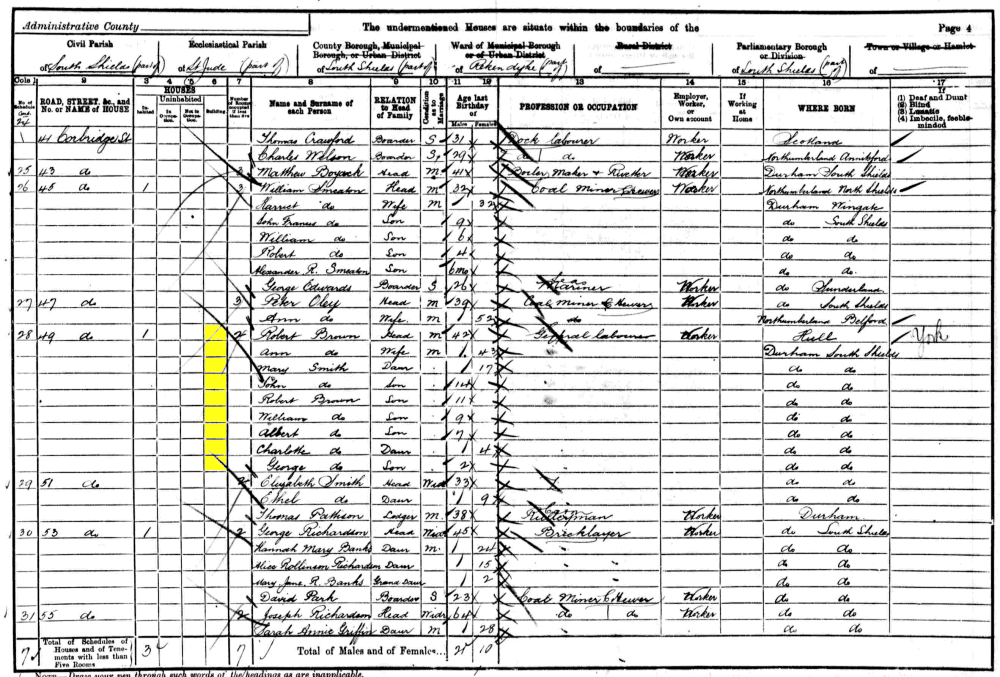 Administrative County The undermentioned Houses are situate within the boundaries of the Page 4
Civil Parish Ecclesiastical Parish County Borough, Municipal Borough, or Urban District Ward of Municipal Borough or of Urban District Rural District Parliamentary Borough or Division Town or Village or Hamlet
of South Shields (part of) of St Jude (part of) of South Shields (part of) of Rekendyke (part of) of of South Shields (part of) of
Cols 1 2 3 4 5 6 7 8 9 10 11 12 13 14 15 16 17
No. of Schedule ROAD, STREET, &c., and No. or NAME of HOUSE HOUSES Inhabited Uninhabited In Occupation. Not in Occupation. Building Number of Rooms if less than five Name and Surname of each Person RELATION to Head of Family Condition as to Marriage Age last Birthday of Males Females PROFESSION OR OCCUPATION Employer, Worker, or Own account If Working at Home WHERE BORN If (1) Deaf and Dumb (2) Blind (3) Lunatic (4) Imbecile, feeble-minded
41 Corbridge St Thomas Crawford Boarder S 31 Dock labourer Worker Scotland
Charles Wilson Boarder S 29 do do Worker Northumberland
25 43 do 2 Matthew Head M 41 Boiler Maker + Riveter Worker Durham South Shields
26 45 do 1 3 William Smeaton Head M 32 Coal Miner Hewer Worker Northumberland North Shields
Harriet do Wife M 32 Durham Wingate
John Francis do Son 9 do South Shields
William do Son 6 do do
Robert do Son 4 do do
Alexander R. Smeaton Son 6mo do do.
George Edwards Boarder S 26 Mariner Worker do Sunderland
27 47 do 3 Peter Oley Head M 39 Coal Miner Hewer Worker do South Shields
Ann do Wife M 52 do Northumberland Belford
28 49 do 1 2 Robert Brown Head M 42 General labourer Worker Hull York
Ann do Wife M 43 Durham South Shields
Mary Smith Daur 17 do do
John do Son 14 do do
Robert Brown Son 11 do do
William do Son 9 do do
Albert do Son 7 do do
Charlotte do Daur 4 do do
George do Son 2 do do
29 51 do 2 Elizabeth Smith Head Wid 33 do do
Ethel do Daur 9 do do
Thomas Pattison Lodger M 38 Worker Durham
30 53 do 1 2 George Richardson Head Widr 45 Bricklayer Worker do South Shields
Hannah Mary Banks Daur M 20 do do
Alice Rollinson Richardson Daur 15 do do
Mary Jane. R. Banks Grand Daur 2 do do
David Park Boarder S 23 Coal Miner Hewer Worker do do
31 55 do 2 Joseph Richardson Head Widr 64 do do Worker do do
Sarah Annie Griffin Daur M 28 do do
7 Total of Schedules of Houses and of Tenements with less than Five Rooms 3 7 Total of Males and of Females... 21 10
NOTE—Draw your pen through such words of the headings as are inapplicable.